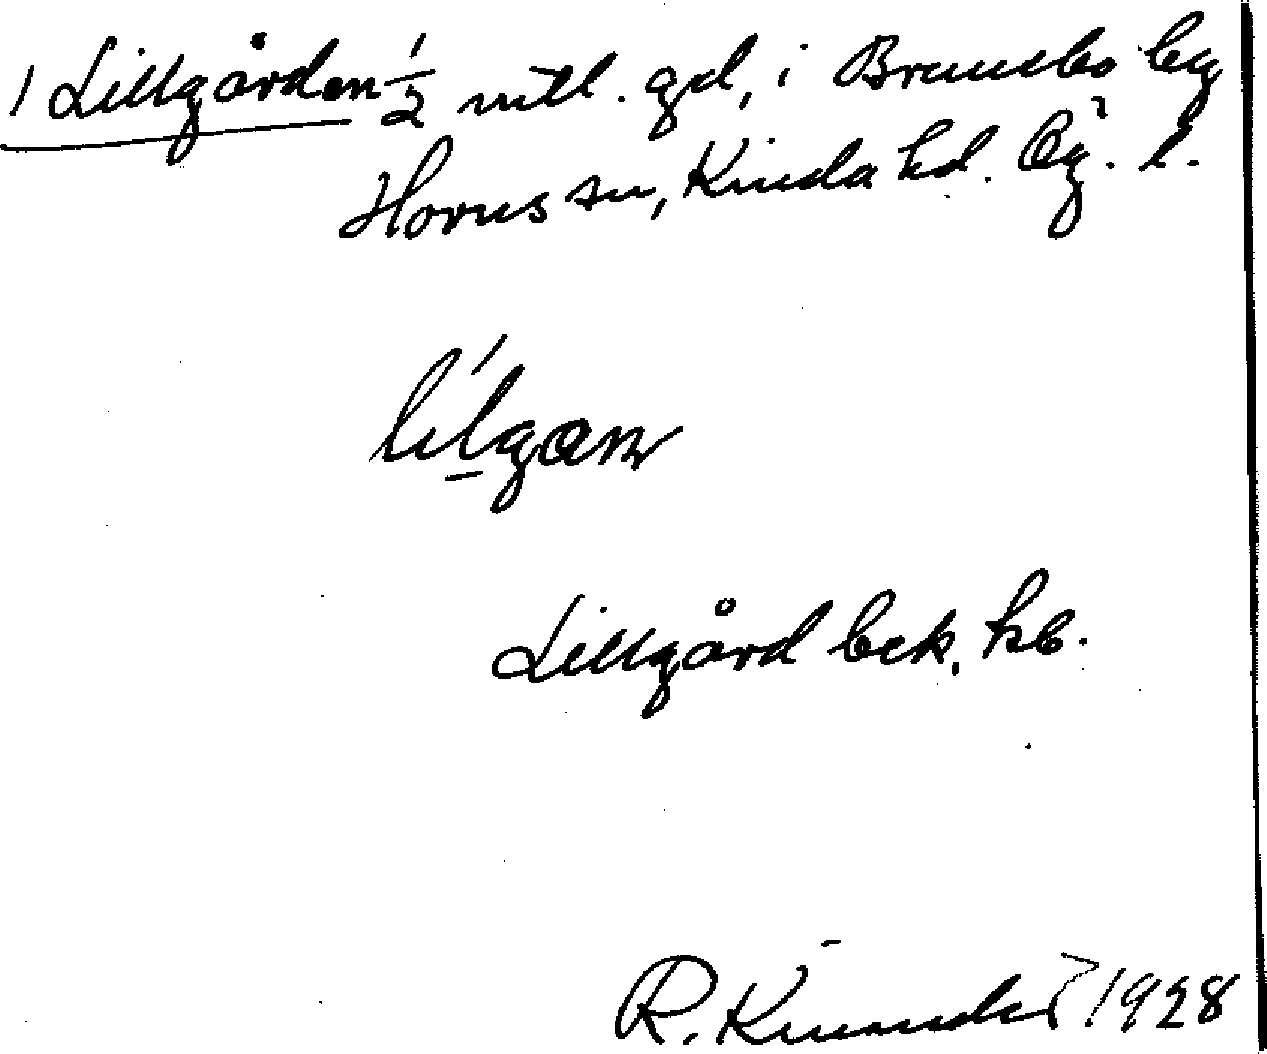 1 Lillgården 1/2 mtl. gd, i Brunsbo by
Horns sn, Kinda hd. Ög. l.
lílgan
Lillgård bek. hb.
R. Kinander 1928